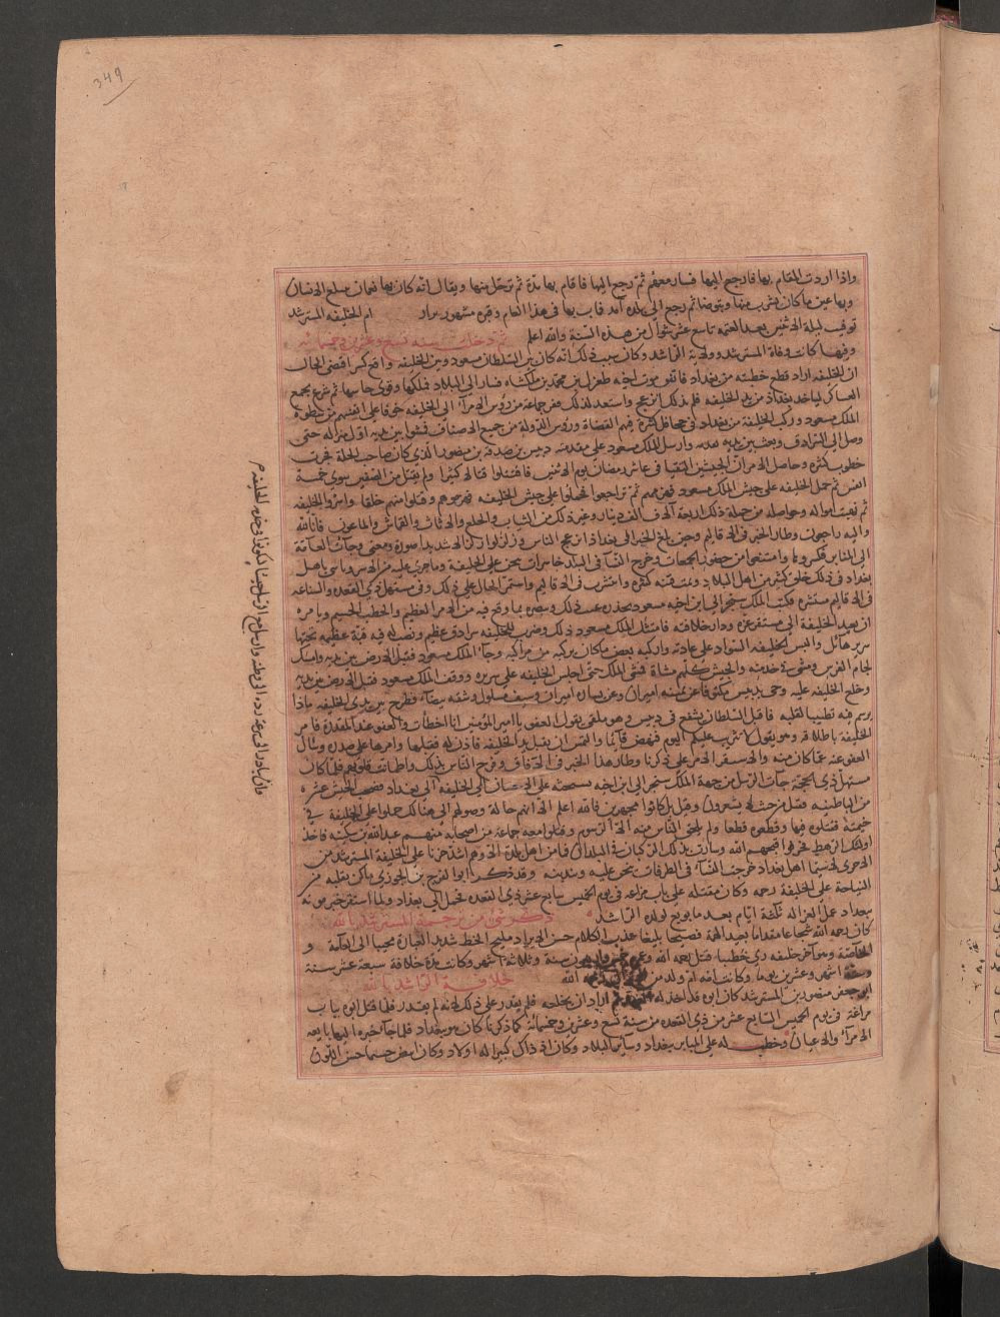 349
واذا اردت المقام بها فارجع اليها فسار معهم ثم رجع اليها فاقام بها مدة ثم ترحل منها ويقال انه كان بها نعمان
وبها عين ماء كان يشرب منها ويتوضا ثم رجع الى بلده آمد فمات بها في هذا العام وقبره مشهور يزار ام الخليفة المسترشد
توفيت ليلة الاثنين بعد العتمة تاسع عشر شوال من هذه السنة والله اعلم ثم دخلت سنة تسع وعشرين وخمسمائة
وفيها كانت وفاة المسترشد وولاية الراشد وكان سبب ذلك انه كان بين السلطان مسعود وبين الخليفة واقع كبير اقتضى الحال
ان الخليفة اراد قطع خطبته من بغداد فاتفق موت اخيه طغرل بن محمد بن ملكشاه فسار الى البلاد فملكها وقوي جاشها ثم شرع يجمع
العساكر لياخذ بغداد من يد الخليفة فلما بلغ ذلك انزعج واستعد لذلك جماعة من رؤس الامرآء الى الخليفة خوفا على انفسهم من سطوة
الملك مسعود وركب الخليفة من بغداد في جحافل كثيرة فيهم القضاة ورؤس الدولة من جميع الاصناف فمشوا بين يديه اول منزلة حتى
وصل الى السرادق وبعث بين يديه مقدمة وارسل الملك مسعود على مقدمته دبيس بن صدقة بن منصور الذي كان صاحب الحلة فجرت
خطوب كثيرة وحاصل الامر ان الجيشين التقيا في عاشر رمضان يوم الاثنين فاقتتلوا قتالا كثيرا ولم يقتل من الصفين سوى خمسة
انفس ثم حمل الخليفة على جيش الملك مسعود فهزمهم ثم تراجعوا فحملوا على جيش الخليفة فهزموهم وقتلوا منهم خلقا واسروا الخليفة
ثم نهبت امواله وحواصله من جملة ذلك اربعة آلاف الف دينار وغير ذلك من الثياب والخلع والاثاث والقماش والماعون فانا لله
وانا اليه راجعون وطار الخبر في الاقاليم وحين بلغ الخبر الى بغداد انزعج الناس وزلزلوا زلزالا شديدا صورة ومعنى وجآت العامة
الى المنابر فكسروها وامتنعوا من حضور الجماعات وخرج النسآء في البلد حاسرات ينحن على الخليفة وما جرى عليه من الاسر وتاسى باهل
بغداد في ذلك خلق كثير من اهل البلاد وتمت فتنة كثيرة وانتشرت في الاقاليم واستمر الحال على ذلك وفي مستهل ذي القعدة والشناعة
في الاقاليم منتشرة فكتب الملك سنجر الى ابن اخيه مسعود يحذره غب ذلك ويبصره بما وقع فيه من الامر العظيم والخطب الجسيم ويامره
ان يعيد الخليفة الى مستقر عزه ودار خلافته فامتثل الملك مسعود ذلك وضرب للخليفة سرادق عظيم ونصب له فيه قبة عظيمة تحتها
سرير هائل والبس الخليفة السواد على عادته واركبه بعض ما كان يركبه من مراكبه وجآء الملك مسعود فقبل الارض بين يديه وامسك
لجام الفرس ومشى في خدمته والجيش كلهم مشاة فمشى الملك حتى اجلس الخليفة على سريره ووقف الملك مسعود فقبل الارض بين يديه
وخلع الخليفة عليه وجئ بدبيس مكتوفا عن يمينه اميران وعن يساره اميران وسيف مسلول وشقة بيضآء فطرح بين يدي الخليفة ماذا
يرسم فيه تطييبا لقلبه فاقبل السلطان يشفع في دبيس وهو ملقى يقول العفو يا امير المؤمنين انا اخطأت والعفو عند المقدرة فامر
الخليفة باطلاقه وهو يقول لا تثريب عليكم اليوم فنهض قائما والتمس ان يقبل يد الخليفة فاذن له فقبلها وامرها على صدره وسأل
العفو عنه عما كان منه واستقر الامر على ما ذكرنا وطار هذا الخبر في الآفاق وفرح الناس بذلك واطمأنت قلوبهم فلما كان
مستهل ذي الحجة جآت الرسل من جهة الملك سنجر الى ابن اخيه يستحثه على الاحسان الى الخليفة الى بغداد فصحب الجيش عشرة
من الباطنية فقيل من حيث لا يشعرون وقيل بل كانوا مجهزين فالله اعلم الا انهم حالة وصولهم الى هنالك حملوا على الخليفة في
خيمته فقتلوه فيها وقطعوه قطعا ولم يلحق الناس منه الا الرسوم وقتلوا معه جماعة من اصحابه منهم عبد الله بن سكينة فاخذ
اولئك الرهط فحرقوا قبحهم الله وسارت بذلك الركبان في البلدان فما من اهل بلدة الا وهم اشد حزنا على الخليفة المسترشد من
الاخرى لا سيما اهل بغداد خرجت النسآء في الطرقات ينحن عليه ويندبنه وقد ذكر ابو الفرج بن الجوزي ما كن يقلنه من
النياحة على الخليفة رحمه وكان مقتله على باب مراغة في يوم الخميس سابع عشر ذي القعدة فحمل الى بغداد ولما استقر خبر موته
ببغداد عمل العزا له ثلاثة ايام بعد ما بويع لولده الراشد ذكر شئ من ترجمة المسترشد بالله
كان رحمه الله شجاعا مقداما بعيد الهمة فصيحا بليغا عذب الكلام حسن الايراد مليح الخط شديد العبارة محببا الى العامة و
الخاصة وهو آخر خليفة رئ خطيبا قتل رحمه الله وعمره خمس واربعين سنة وثلاثة اشهر وكانت مدة خلافته سبعة عشر سنة
وستة اشهر وعشرين يوما وكانت امه ام ولد من الله خلافة الراشد بالله
ابو جعفر منصور بن المسترشد كان ابوه قد اخذ له ثم اراد ان يخلعه فلم يقدر على ذلك لانه لم يغدر فلما قتل ابوه بباب
مراغة في يوم الخميس السابع عشر من ذي القعدة من سنة تسع وعشرين وخمسمائة كما ذكرنا كان هو ببغداد فلما جآ خبره اليها بايعه
الامرآء والاعيان وخطب له على المنابر ببغداد وسائر البلاد وكان اذ ذاك كبيرا له اولاد وكان ابيض جسيما حسن اللون